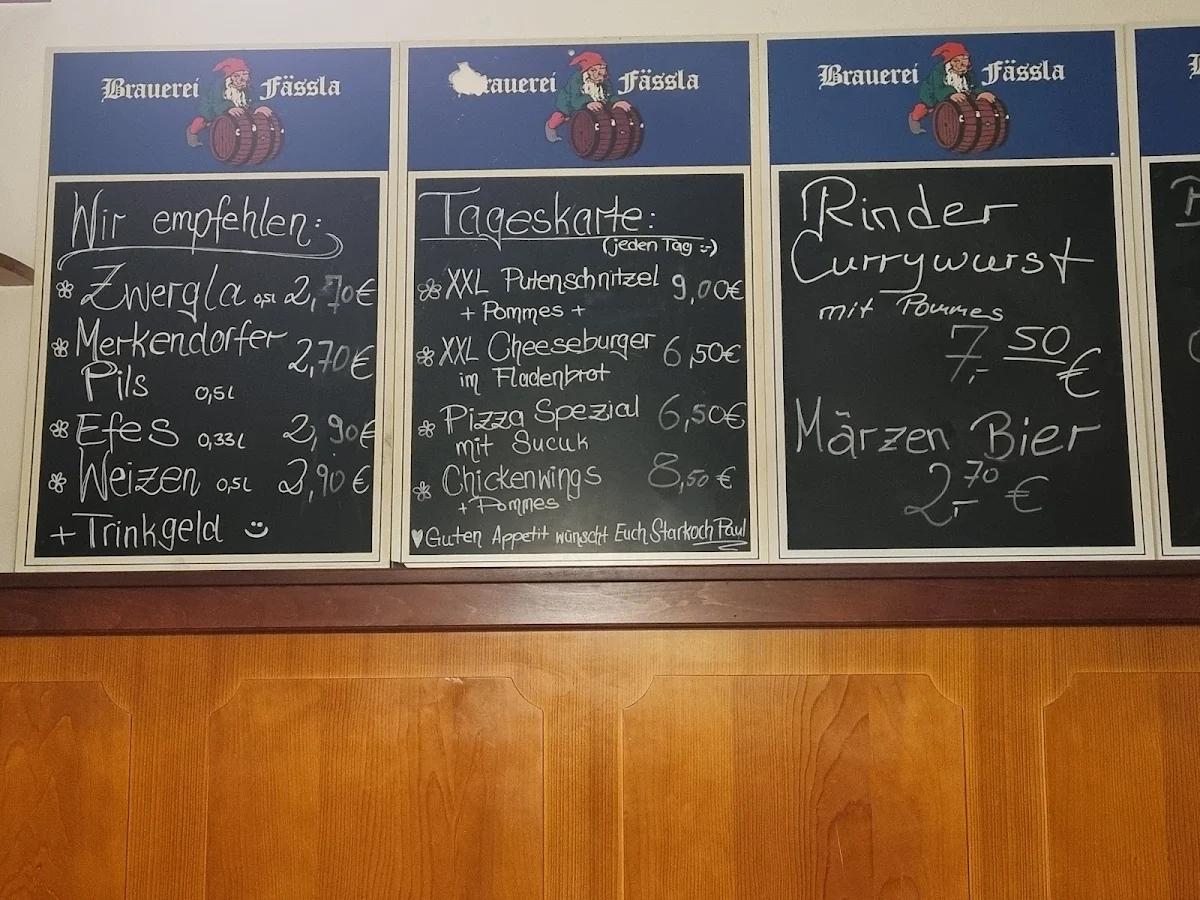 Brauerei Fässla
Wir empfehlen:
Zwergla 0,5L 2,70€
Merkendorfer
Pils 0,5L 2,70€
Efes 0,33L 2,90€
Weizen 0,5L 2,90€
+ Trinkgeld
rauerei Fässla
Tageskarte:
(jeden Tag :-)
XXL Putenschnitzel 9,00€
+ Pommes +
XXL Cheeseburger 6,50€
im Fladenbrot
Pizza Spezial 6,50€
mit Sucuk
Chickenwings 8,50€
+ Pommes
♥Guten Appetit wünscht Euch Starkoch Paul
Brauerei Fässla
Rinder
Currywurst
mit Pommes
7,50 €
Märzen Bier
2,70 €